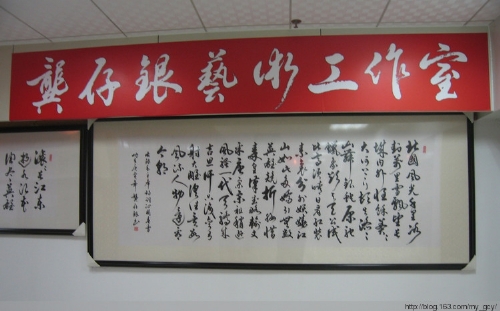 龔存銀藝術工作室
北國風光千里冰
封萬里雪飄望長
城內外惟餘莽莽
大河上下頓失滔滔
山舞銀蛇原馳
蠟象欲與天公試
比高須晴日看紅裝
素裹分外妖嬈江
山如此多嬌引無數
英雄競折腰惜
秦皇漢武略輸文
采唐宗宋祖稍遜
風騷一代天驕成
吉思汗只識彎弓
射大雕俱往矣數
風流人物還看
今朝
滾滾長江東
逝水浪花
淘盡英雄
http://blog.163.com/my_gcy/